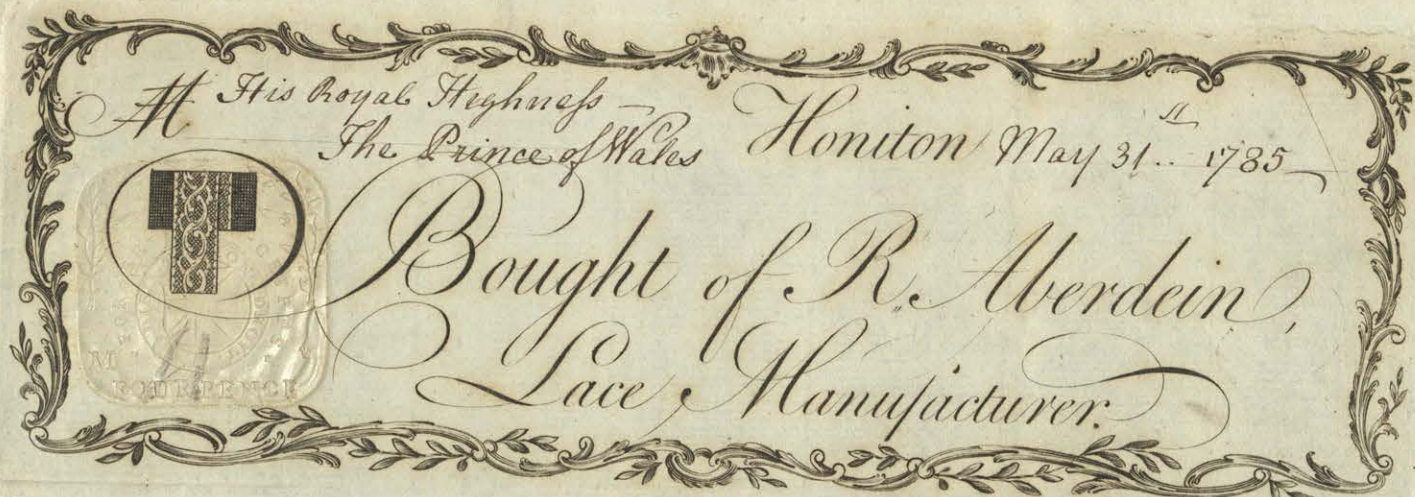 M His Royal Highneſs
The Prince of Wales
Honiton May 31.. st 1785
Bought of R. Aberdein,
Lace Manufacturer.
FOURPENCE